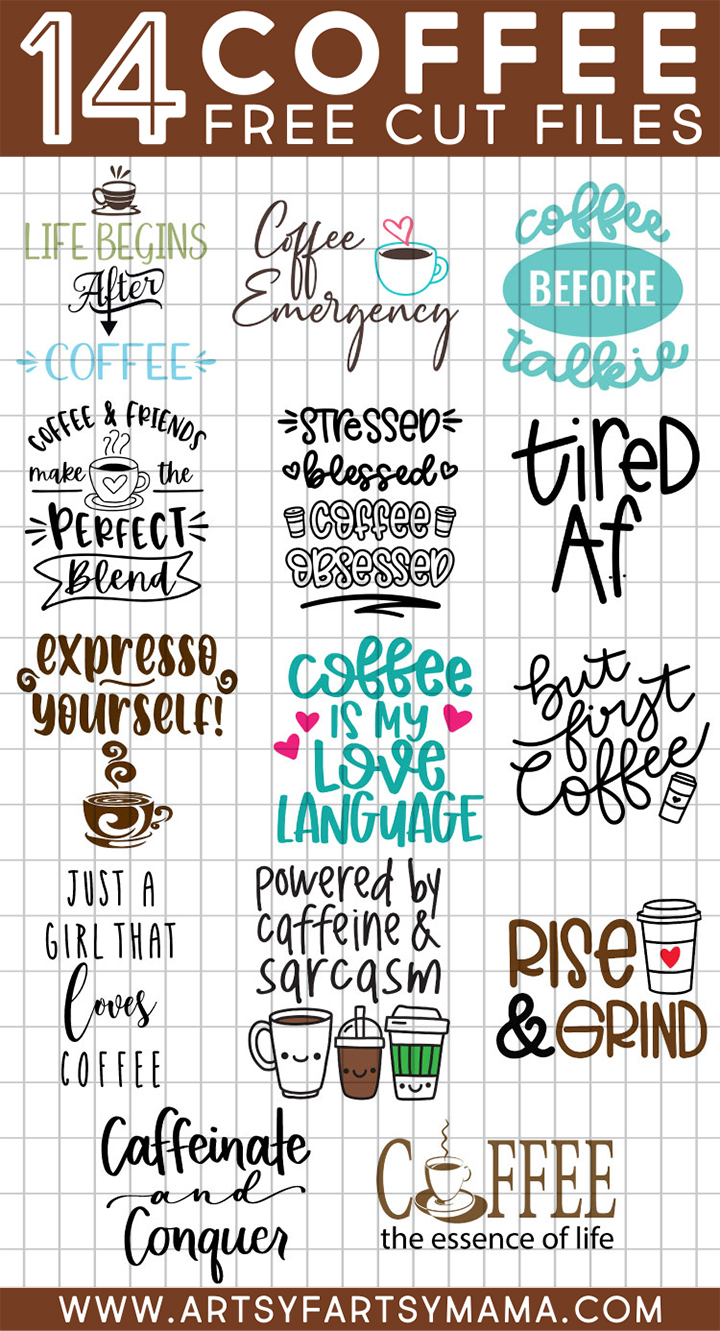 14 COFFEE
FREE CUT FILES
LIFE BEGINS
After
COFFEE
Coffee
Emergency
coffee
BEFORE
talkie
COFFEE & FRIENDS
make the
PERFECT
Blend
STRESSED
blessed
COFFEE
OBSESSED
tired
Af
expresso
yourself!
Coffee
IS MY
LOVE
LANGUAGE
but
first
Coffee
JUST A
GIRL THAT
loves
COFFEE
powered by
caffeine &
sarcasm
RISE
& GRIND
Caffeinate
and
Conquer
COFFEE
the essence of life
WWW.ARTSYFARTSYMAMA.COM